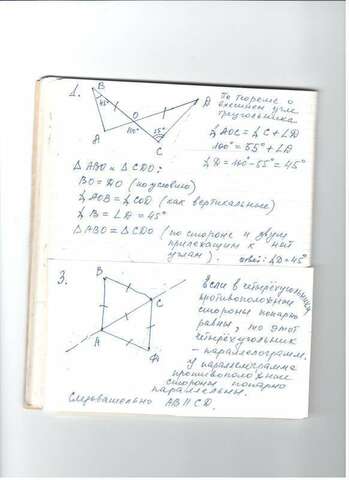 1.
B
45°
O
D
100°
55°
A
C
По теореме о
внешнем угле
треугольника.
∠AOC = ∠C + ∠D
100° = 55° + ∠D
∠D = 100° - 55° = 45°
△ABO и △CDO:
BO = DO (по условию)
∠AOB = ∠COD (как вертикальные)
∠B = ∠D = 45°
△ABO = △CDO (по стороне и двум
прилежащим к ней
углам).
ответ: ∠D = 45°
3.
B
C
A
Если в четырёхугольнике
противоположные
стороны попарно
равны, то этот
четырёхугольник
- параллелограмм.
У параллелограмма
противоположные
стороны попарно
параллельны.
Следовательно AB || CD.